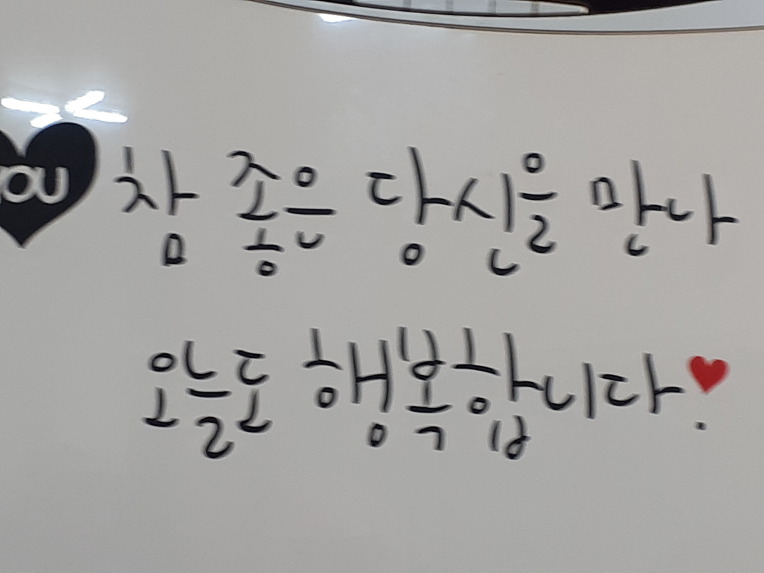 YOU 참 좋은 당신을 만나
오늘도 행복합니다.